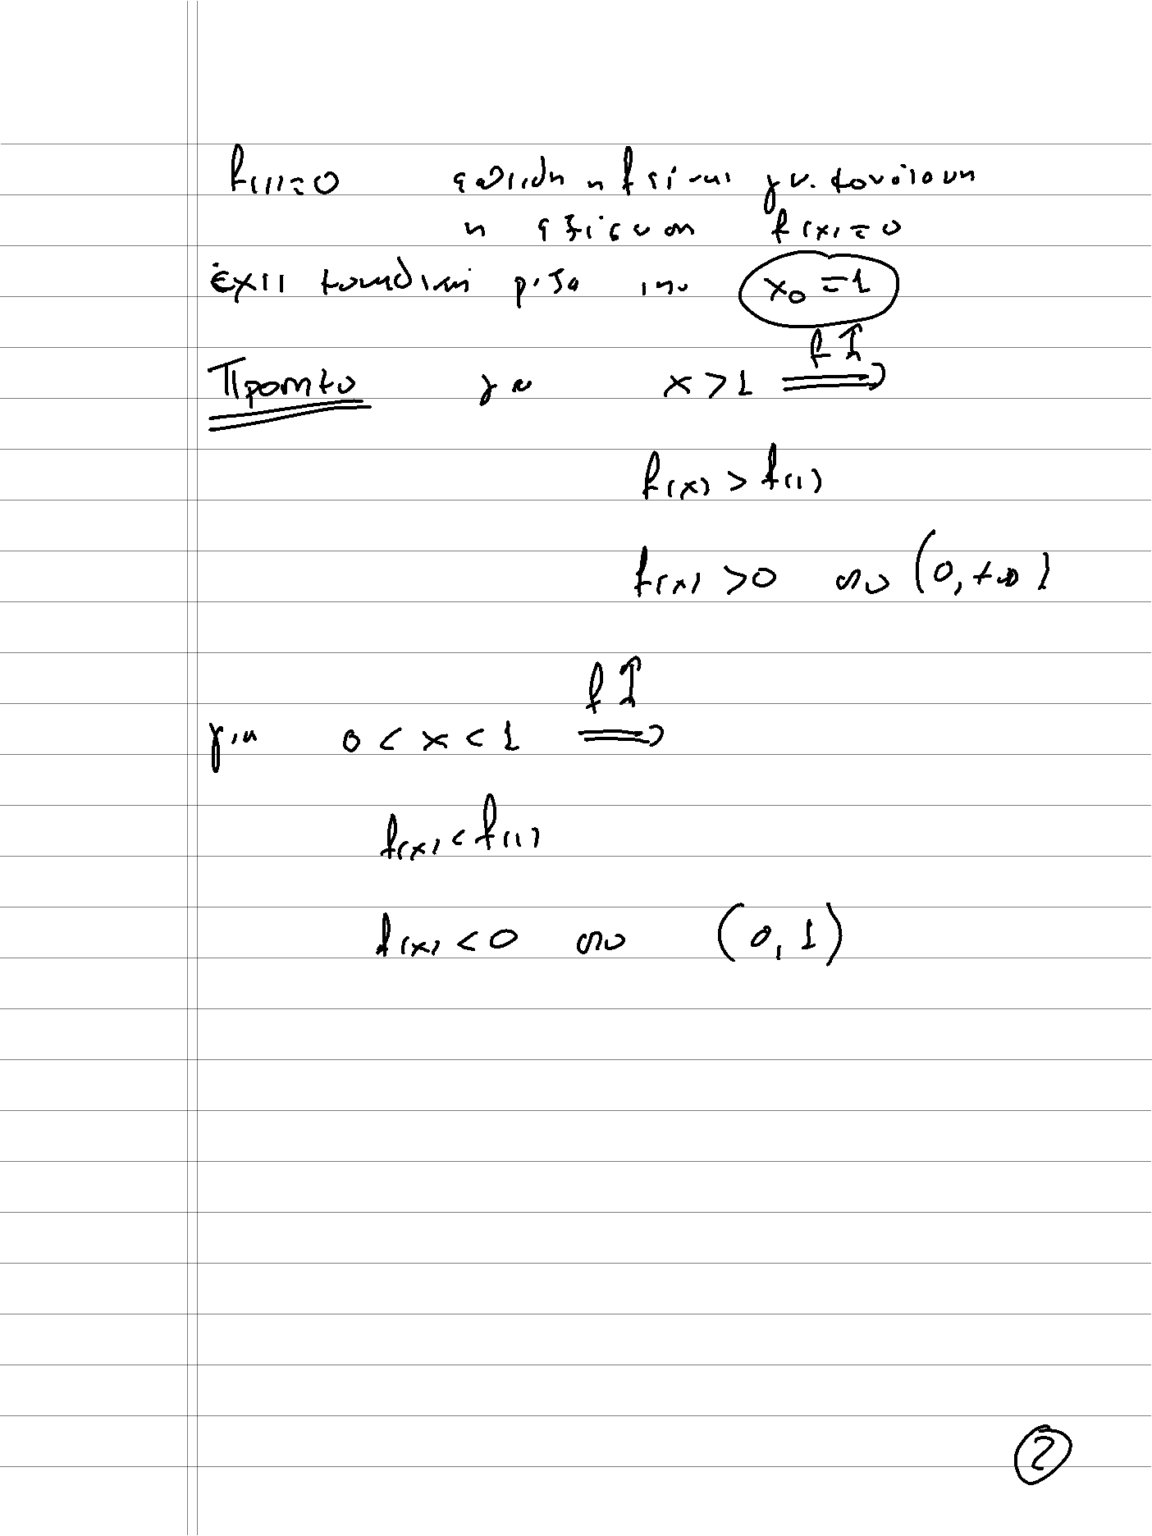 f(1)=0 επειδή η f είναι γν. μονότονη
η εξίσωση f(x)=0
έχει μοναδική ρίζα την x₀=1
Πρόσημο για x>1 ⟹ f↑
f(x)>f(1)
f(x)>0 στο (0,+∞)
f↑
για 0<x<1 ⟹
f(x)<f(1)
f(x)<0 στο (0,1)
2